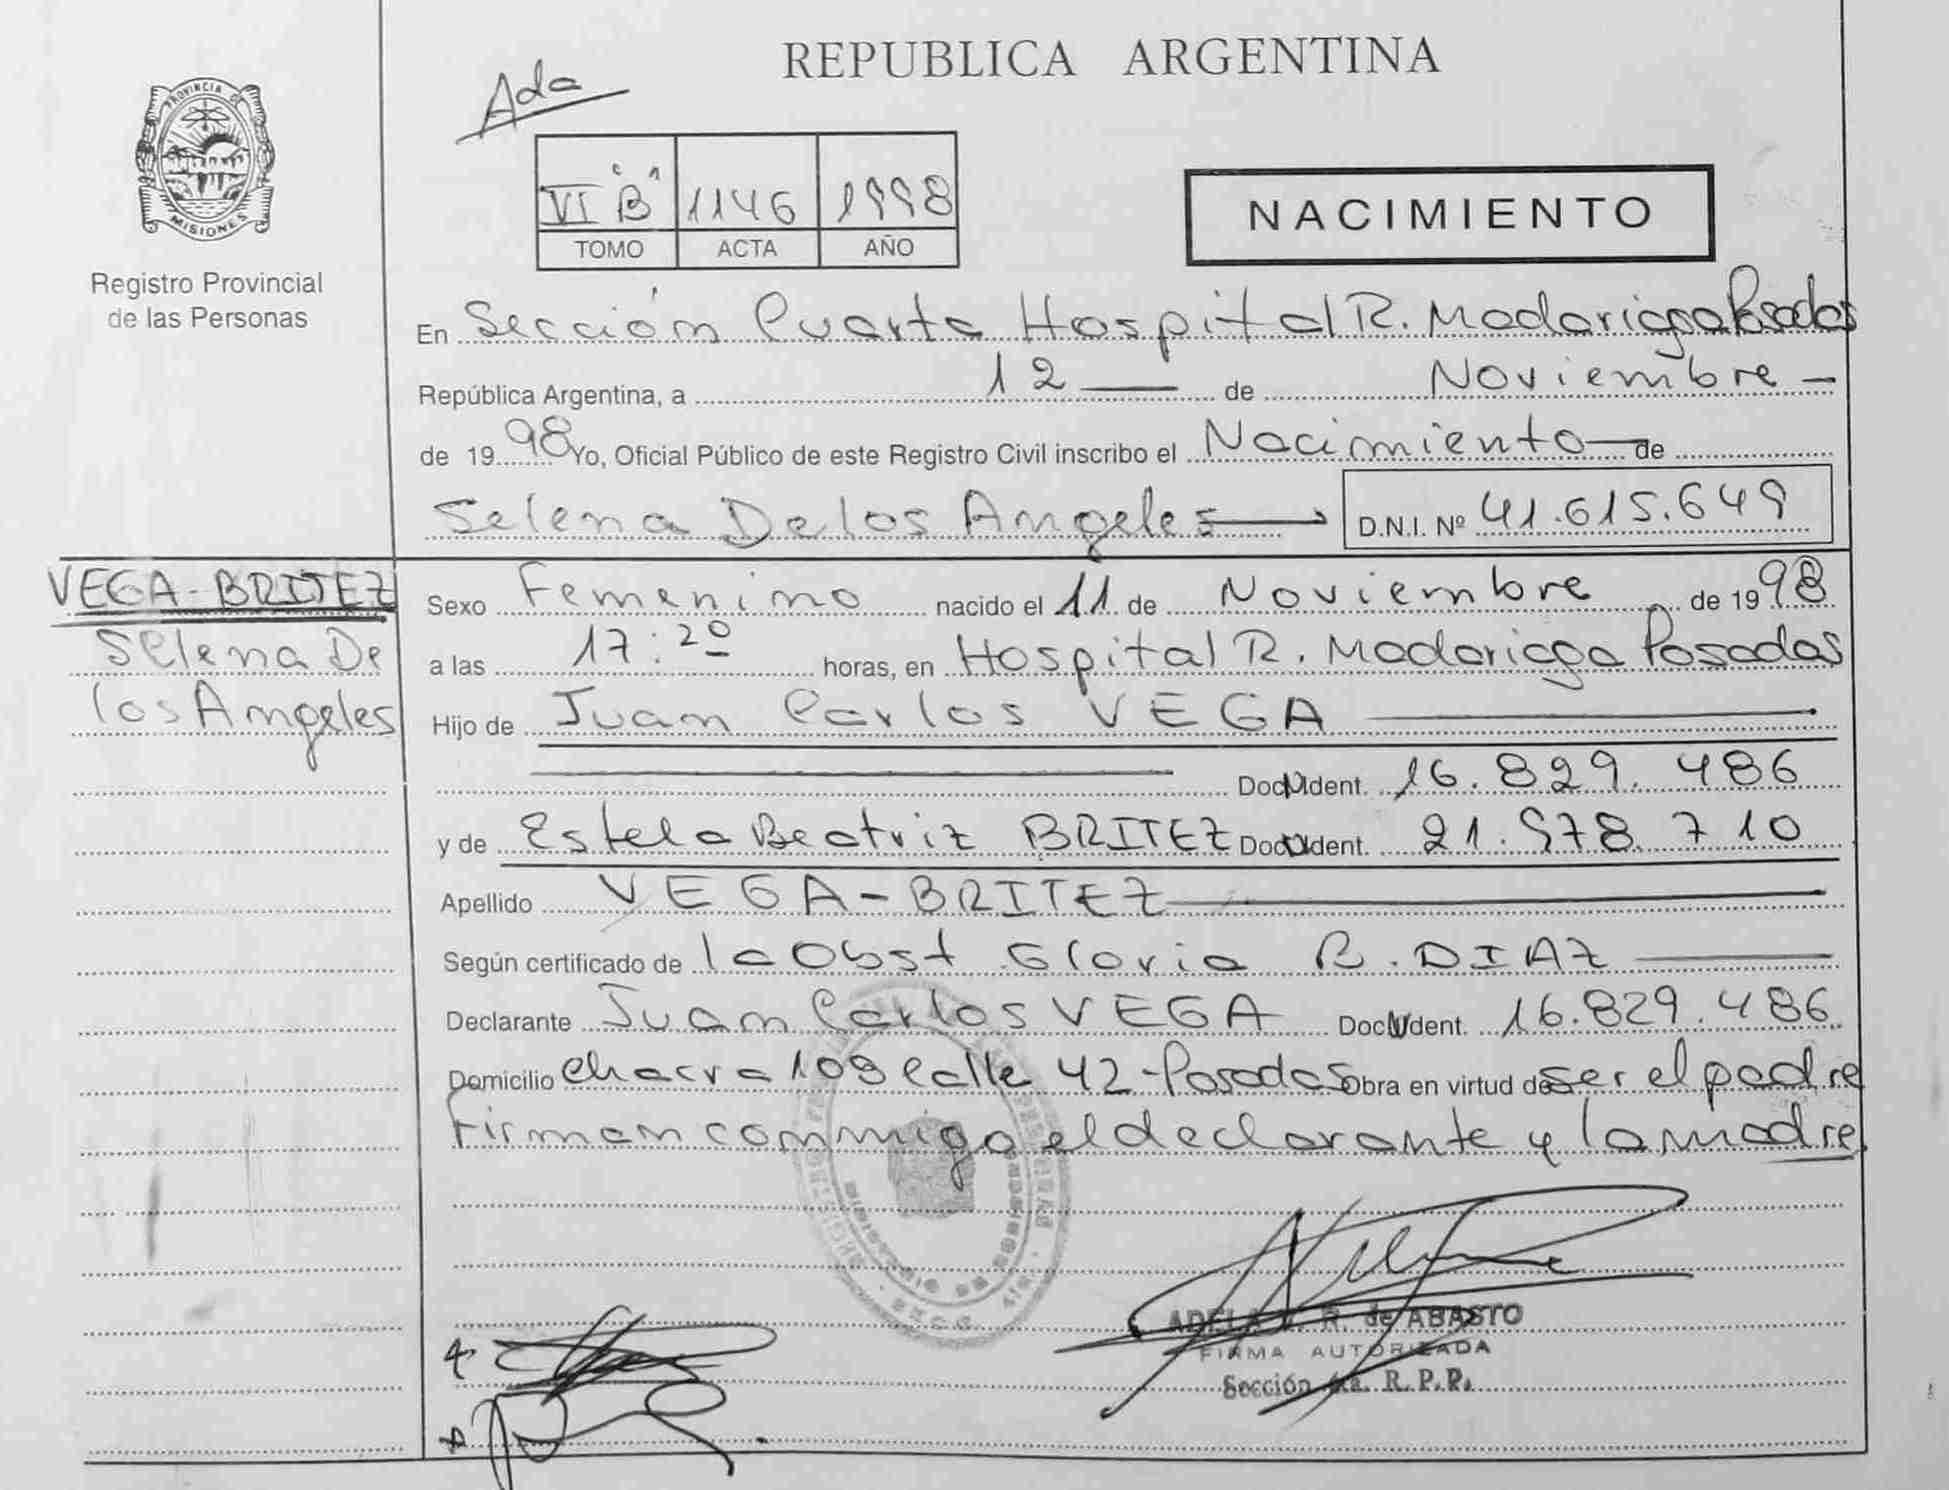 REPUBLICA ARGENTINA
Ada
PROVINCIA DE
MISIONES
Registro Provincial
de las Personas
VI "B" 1146 1998
TOMO ACTA AÑO
NACIMIENTO
En Sección Cuarta Hospital R. Madariaga Posadas
República Argentina, a 12 de Noviembre
de 1998 Yo, Oficial Público de este Registro Civil inscribo el Nacimiento de
Selena De los Angeles D.N.I. Nº 41.615.649
VEGA-BRITEZ
Selena De
los Angeles
Sexo Femenino nacido el 11 de Noviembre de 1998
a las 17:20 horas, en Hospital R. Madariaga Posadas
Hijo de Juan Carlos VEGA
Doc Ident. 16.829.486
y de Estela Beatriz BRITEZ Doc Ident. 21.978.710
Apellido VEGA-BRITEZ
Según certificado de la Obst Gloria R. DIAZ
Declarante Juan Carlos VEGA Doc Ident. 16.829.486
Domicilio Chacra 109 Calle 42-Posadas Obra en virtud de ser el padre
Firman conmigo el declarante y la madre
MINISTERIO DE GOBIERNO
ADELA R. de ABASTO
FIRMA AUTORIZADA
Sección 4a. R.P.P.